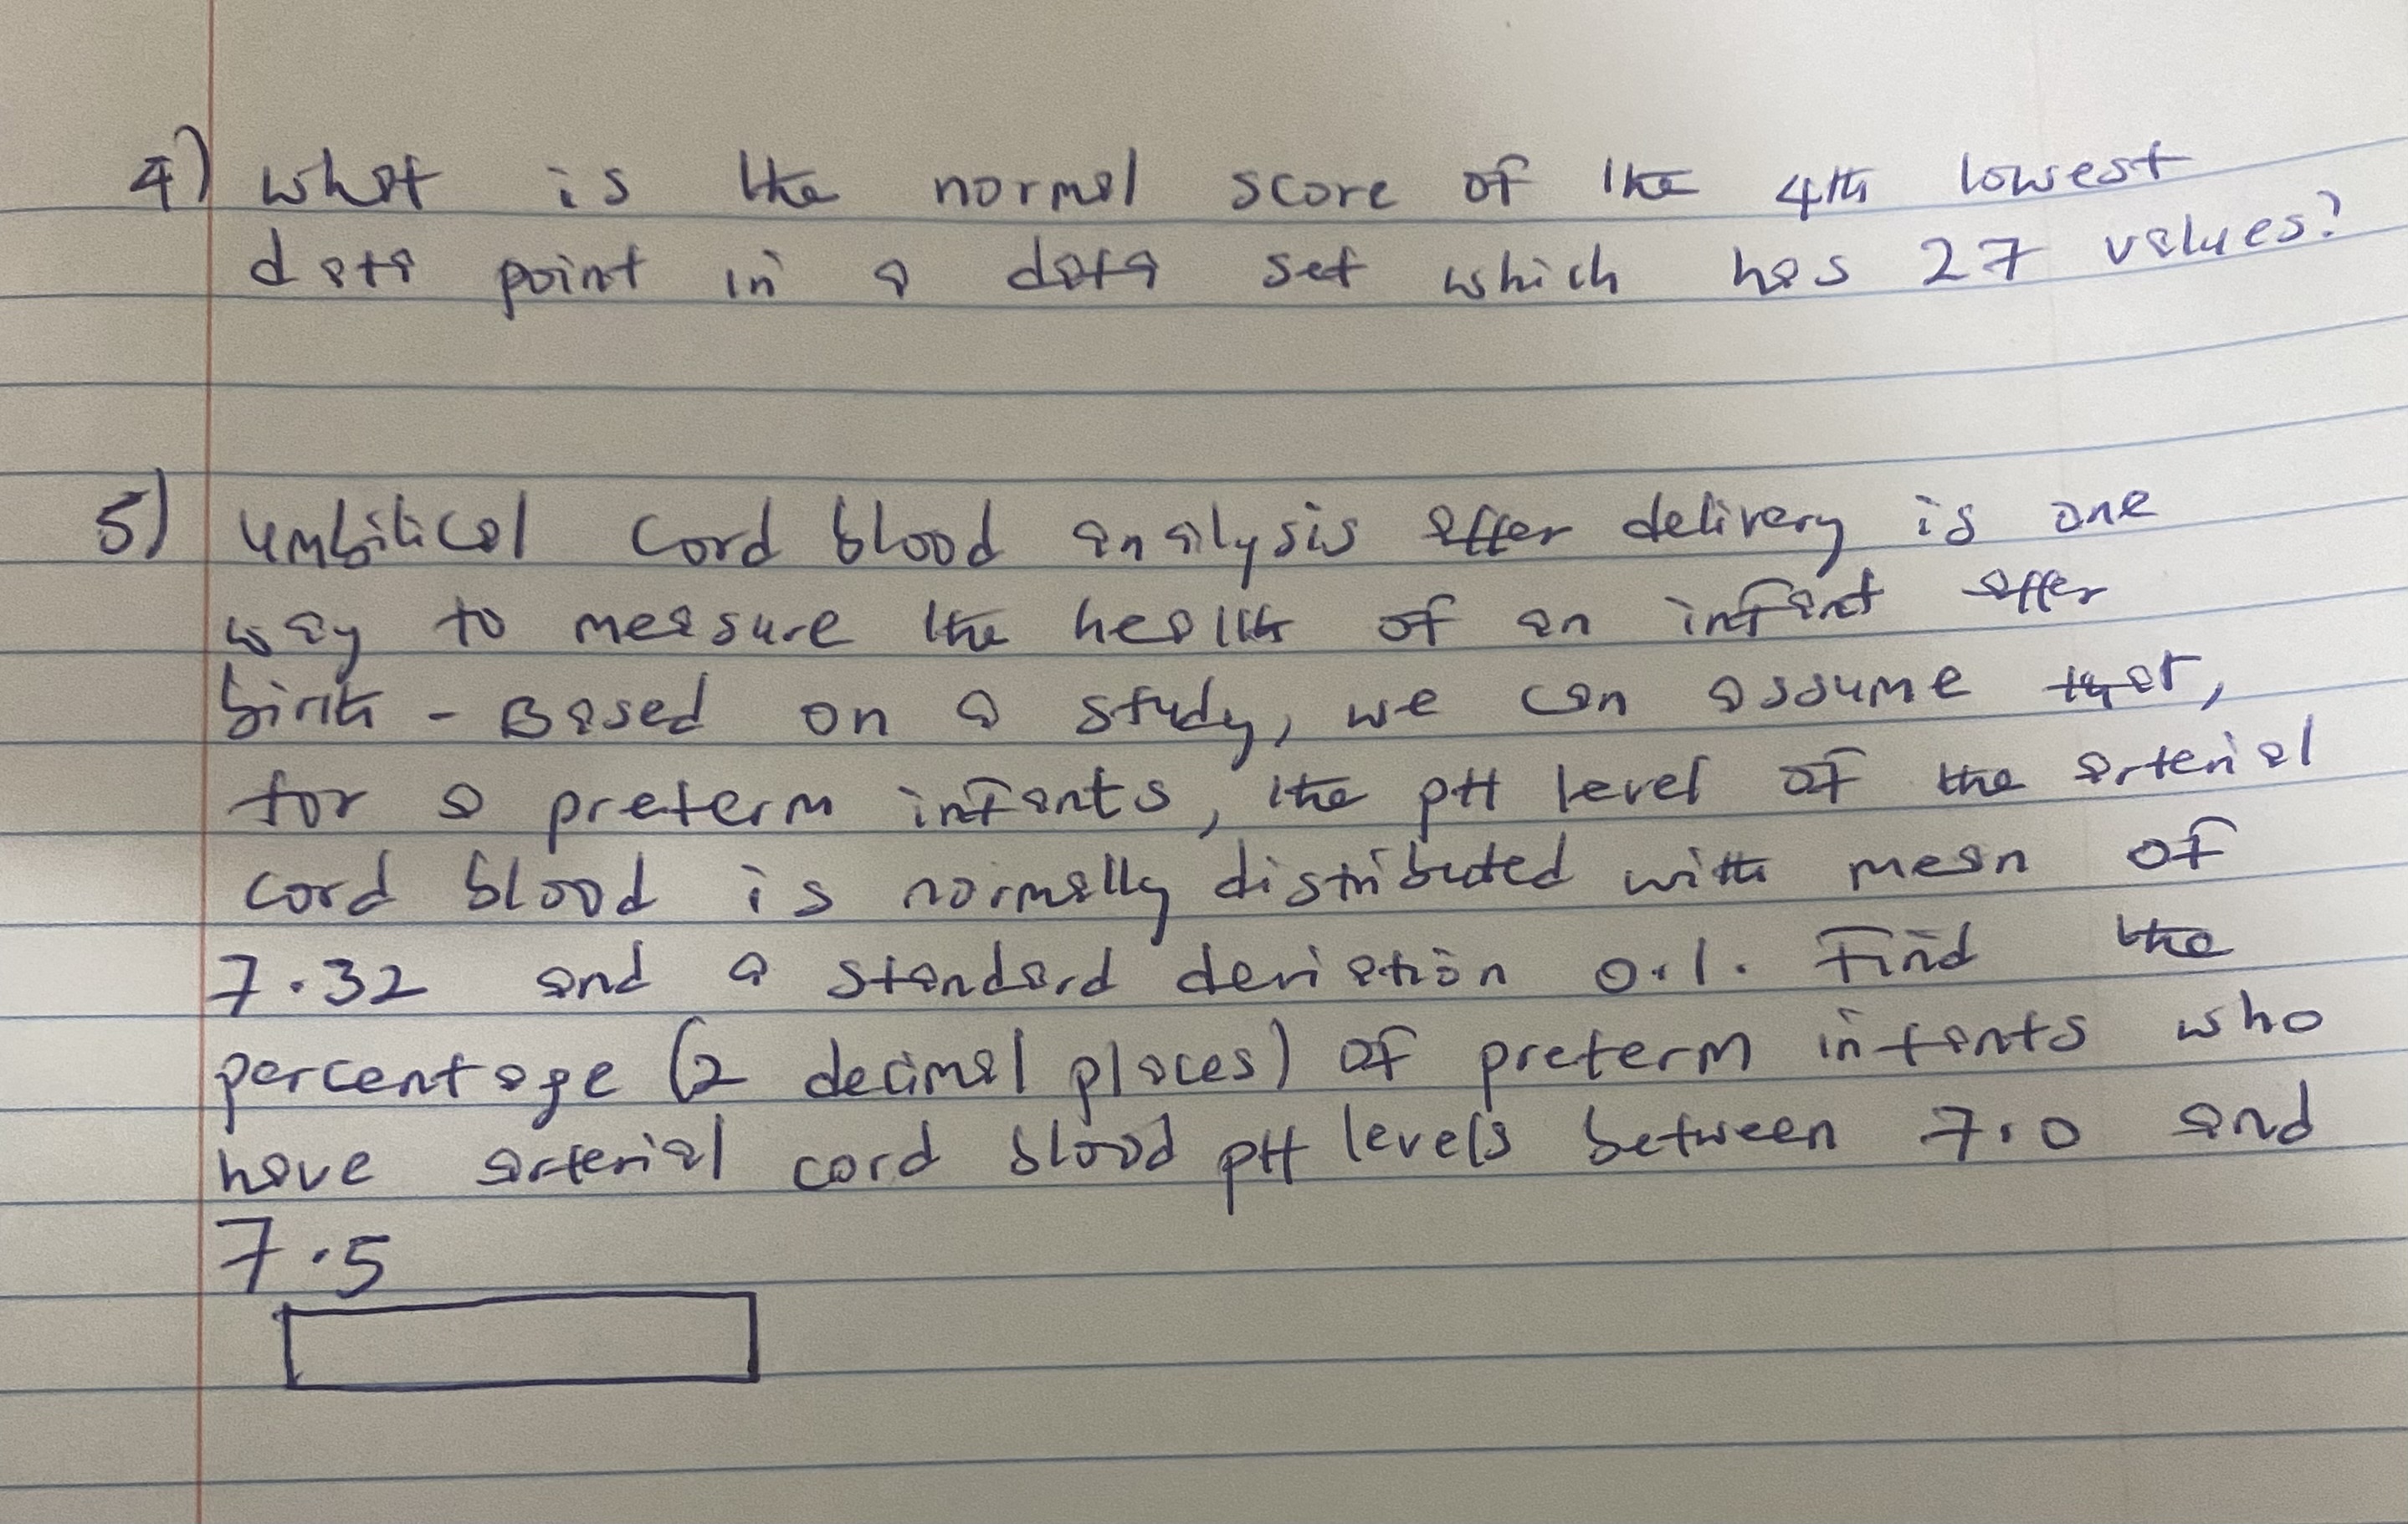 4) what is the normal score of the 4th lowest
data point in a data set which has 27 values?
5) umbilical cord blood analysis after delivery is one
way to measure the health of an infant after
birth - Based on a study, we can assume that,
for a preterm infants, the pH level of the arterial
cord blood is normally distributed with mean of
7.32 and a standard deviation 0.1. Find the
percentage (2 decimal places) of preterm infants who
have arterial cord blood pH levels between 7.0 and
7.5